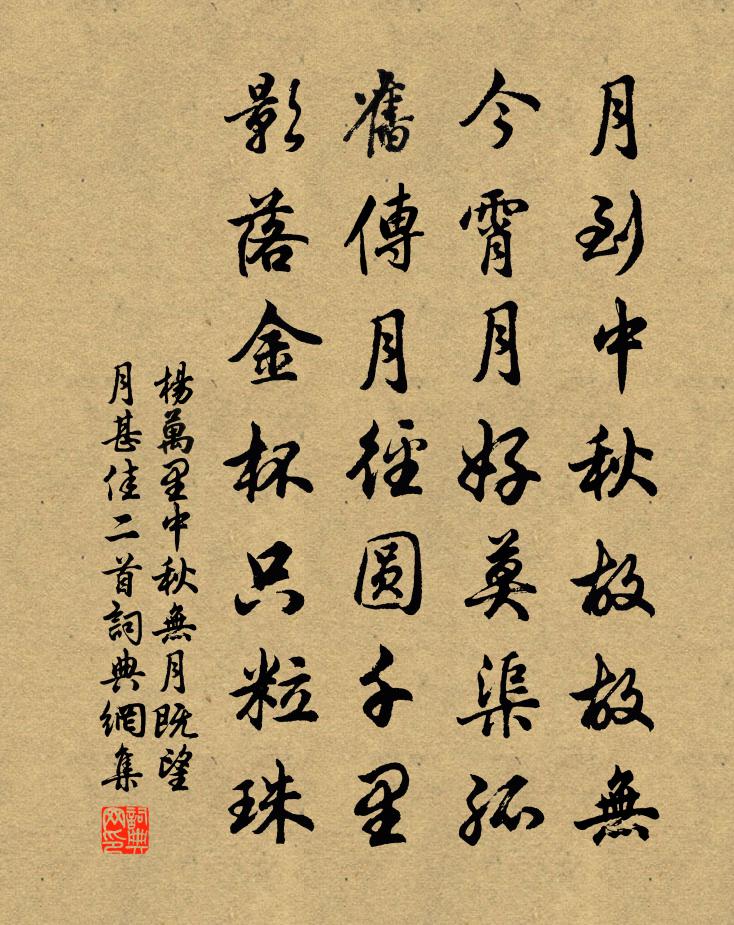 月到中秋故故無
今霄月好莫渠孤
舊傳月徑圓千里
影落金杯只粒珠
楊萬里中秋無月既望
月甚佳二首詞典網集
詞典网印